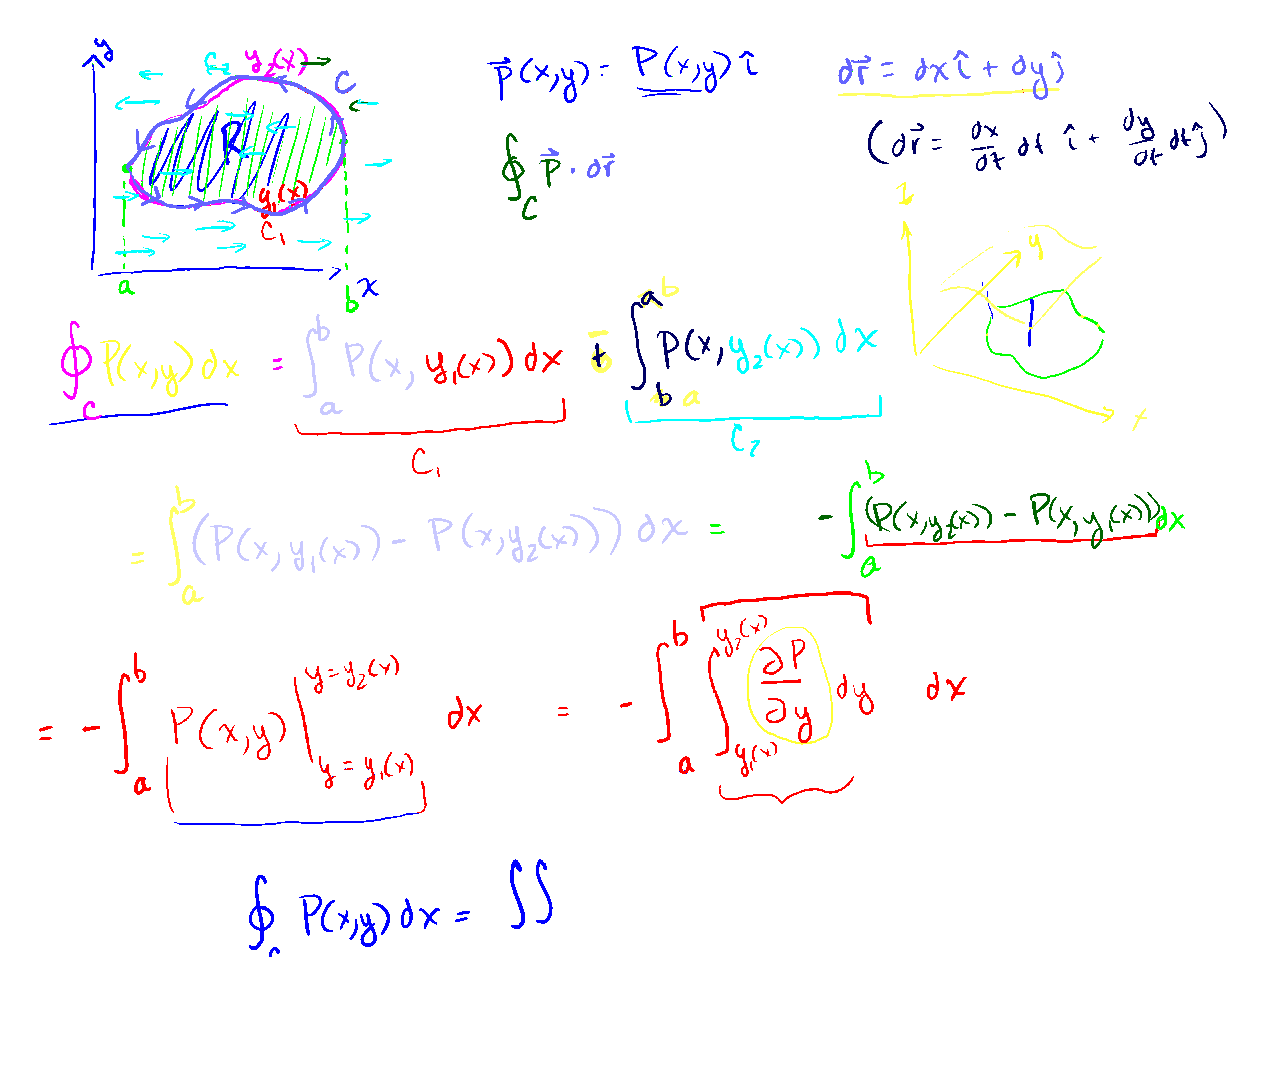 y C₂ y₂(x) C
R
y₁(x)
C₁
a b x
p⃗(x,y) = P(x,y) î dr⃗ = dx î + dy ĵ
(dr⃗ = dx/dt dt î + dy/dt dt ĵ)
∮_C p⃗ · dr⃗
z y x
∮_C P(x,y) dx = ∫_a^b P(x, y₁(x)) dx + ∫_b^a P(x, y₂(x)) dx
C₁ C₂
= ∫_a^b (P(x,y₁(x)) - P(x,y₂(x))) dx = - ∫_a^b (P(x,y₂(x)) - P(x,y₁(x))) dx
= - ∫_a^b P(x,y) |_{y=y₁(x)}^{y=y₂(x)} dx = - ∫_a^b ∫_{y₁(x)}^{y₂(x)} ∂P/∂y dy dx
∮_C P(x,y) dx = ∬